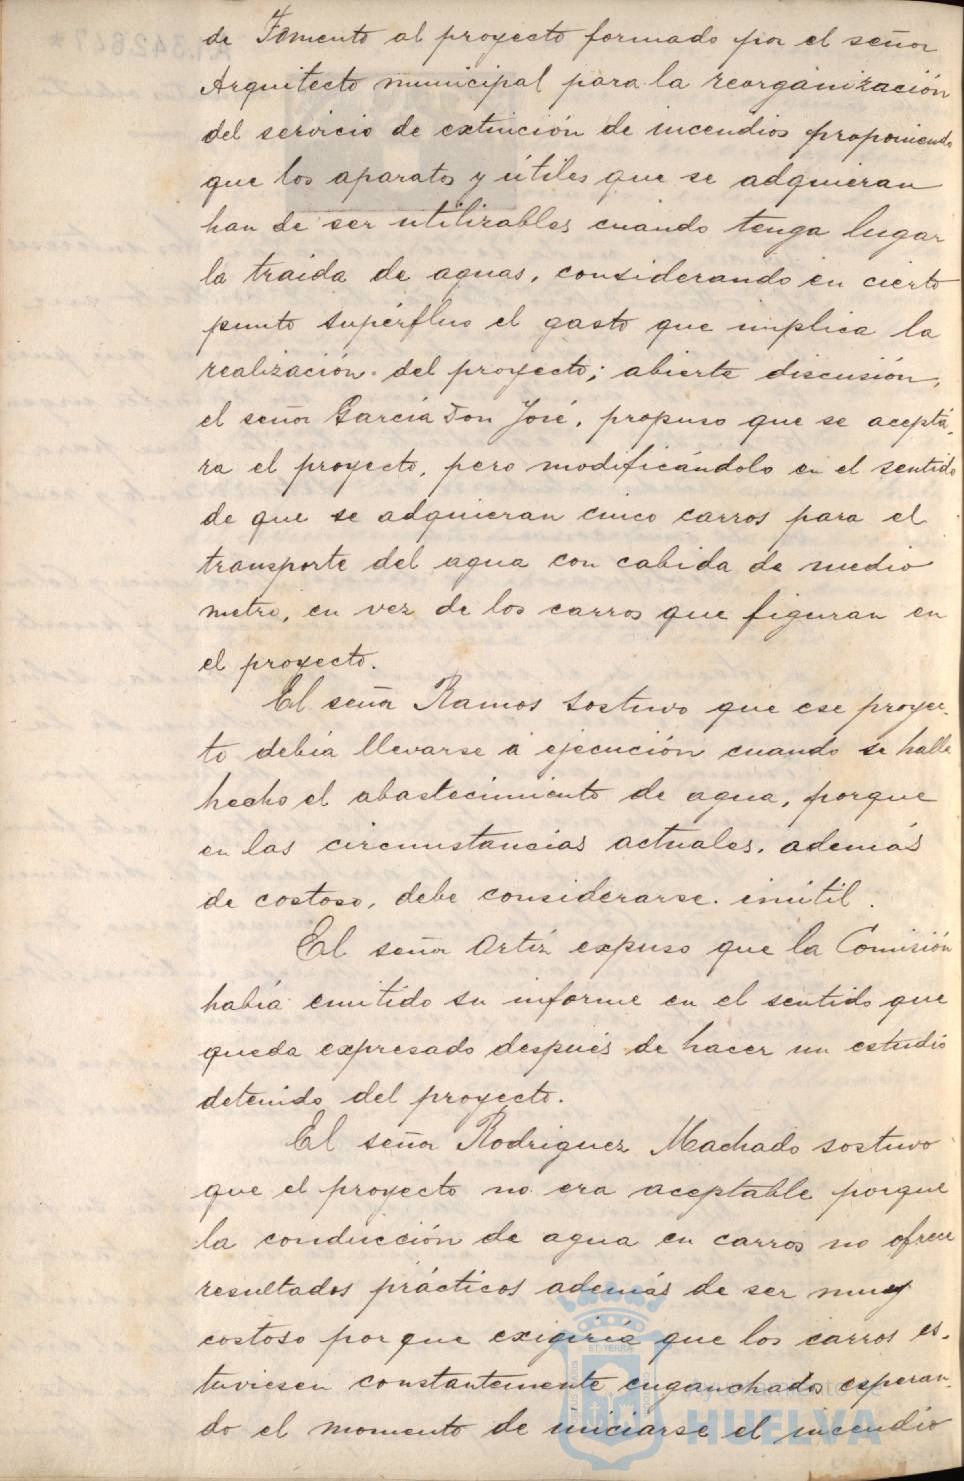 de Fomento al proyecto formado por el señor
Arquitecto municipal para la reorganización
del servicio de extinción de incendios proponiendo
que los aparatos y útiles que se adquieran
han de ser utilizables cuando tenga lugar
la traida de aguas, considerando en cierto
punto supérfluo el gasto que implica la
realización del proyecto; abierta discusión,
el señor García Don José, propuso que se aceptá-
ra el proyecto, pero modificándolo en el sentido
de que se adquieran cinco carros para el
transporte del agua con cabida de medio
metro, en vez de los carros que figuran en
el proyecto.
El señor Ramos sostuvo que ese proyec-
to debía llevarse á ejecución cuando se halle
hecho el abastecimiento de agua, porque
en las circunstancias actuales, además
de costoso, debe considerarse inútil.
El señor Ortíz expuso que la Comisión
había emitido su informe en el sentido que
queda expresado después de hacer un estudio
detenido del proyecto.
El señor Rodriguez Machado sostuvo
que el proyecto no era aceptable porque
la conducción de agua en carros no ofrece
resultados prácticos además de ser muy
costoso porque exigiría que los carros es-
tuviesen constantemente enganchados esperan-
do el momento de iniciarse el incendio
Ayuntamiento de
HUELVA